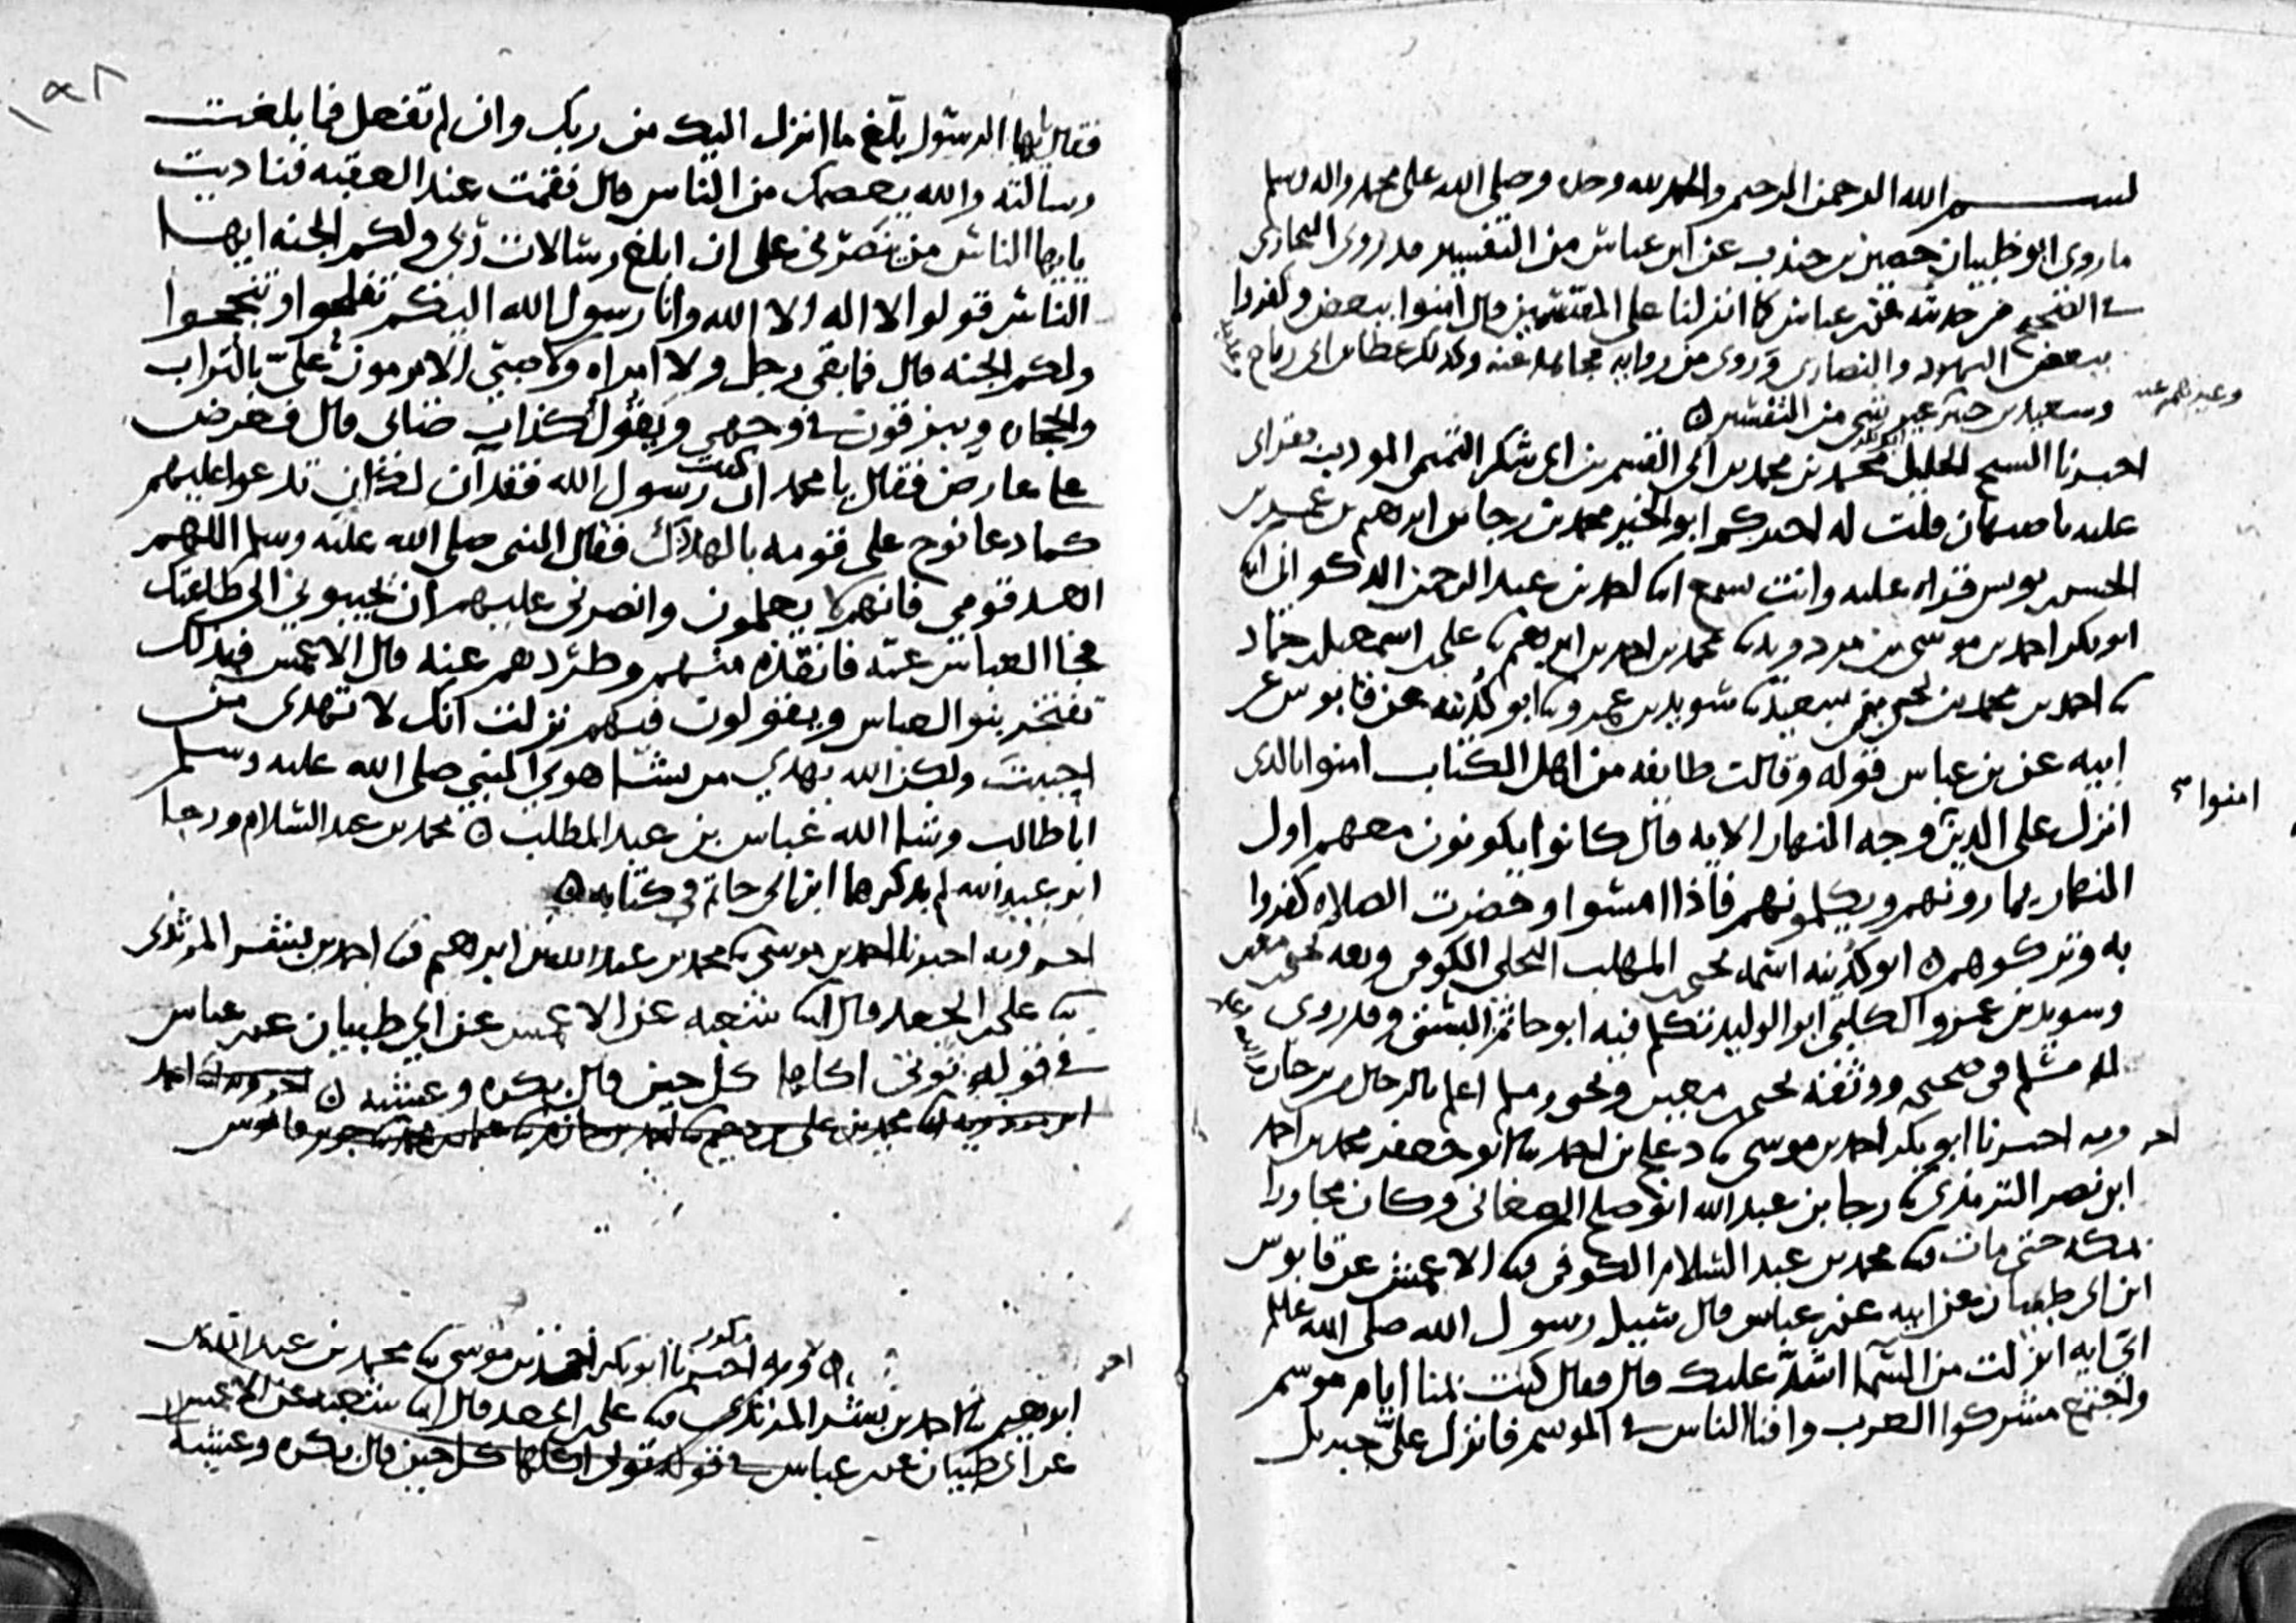 بسم الله الرحمن الرحيم والحمد لله وحده وصلى الله على محمد واله وسلم
ما روى ابو ظبيان حصين بن جندب عن ابن عباس من التفسير قد روى البخارى
في الصحيح من حديثه عن بن عباس كما انزلنا على المقتسمين قال امنوا ببعض وكفروا
ببعض اليهود والنصارى وروى من روايه مجاهد عنه وكذلك عطا بن ابى رباح
وسعيد بن جبير غير شي من التفسير
وغيرهم عنه
اخبرنا الشيخ الجليل محمد بن محمد بن ابى القسم بن ابى شكر التميمى المودب بقراتى
عليه باصبهان قلت له اخبركم ابو الخير محمد بن رجا بن ابرهيم بن عمر بن
الحسن بن يونس قراه عليه وانت تسمع انا احمد بن عبد الرحمن الذكوانى انا
ابو بكر احمد بن موسى بن مردويه نا محمد بن احمد بن ابرهيم نا على اسمعيل حماد
نا احمد بن محمد بن يحيى بن سعيد نا سويد بن عمرو نا ابو كدينه عن قابوس عن
ابيه عن بن عباس قوله وقالت طايفه من اهل الكتاب امنوا بالذى
انزل على الذين وجه النهار الايه قال كانوا يكونون معهم اول
امنوا
النهار يمارونهم ويكلمونهم فاذا امسوا وحضرت الصلاه كفروا
به وتركوه ابو كدينه اسمه يحيى المهلب البجلى الكوفى وثقه يحيى بن معين
وسويد بن عمرو الكلبى ابو الوليد تكلم فيه ابو حاتم البستى وقد روى
له مسلم فى صحيحه ووثقه يحيى بن معين ويحيى ومسلم اعلم بالرجال من بن حبان
اخر وبه اخبرنا ابو بكر احمد بن موسى نا دعلج بن احمد نا ابو جعفر محمد بن احمد
ابن نصر الترمذى نا رجا بن عبد الله ابو صلح الصغانى وكان مجاورا
بمكه حتى مات نا محمد بن عبد السلام الكوفى نا الاعمش عن قابوس
ابن ابى ظبيان عن ابيه عن بن عباس قال سيل رسول الله صلى الله عليه
اى ايه انزلت من السما اشد عليك قال فقال كنت بمنا ايام موسم
واجتمع مشركوا العرب وافنا الناس في الموسم فانزل على جبريل
فقال يايها الرسول بلغ ما انزل اليك من ربك وان لم تفعل فما بلغت
رسالته والله يعصمك من الناس قال فقمت عند العقبه فناديت
يايها الناس من ينصرنى على ان ابلغ رسالات ربى ولكم الجنه ايها
الناس قولوا لا اله الا الله وانا رسول الله اليكم تفلحوا وتنجحوا
ولكم الجنه قال فما بقى رجل ولا امراه ولا صبي الا يرمون علي بالتراب
والحجاره ويبزقون في وجهي ويقولون كذاب صابى قال فعرض
على عارض فقال يا محمد ان كنت رسول الله فقد ان لك ان تدعوا عليهم
كما دعا نوح على قومه بالهلاك فقال النبى صلى الله عليه وسلم اللهم
اهد قومي فانهم لا يعلمون وانصرنى عليهم ان يجيبوني الى طاعتك
فجا العباس عمه فانقذه منهم وطردهم عنه قال الاعمش فبذلك
تفتخر بنوا العباس ويقولون فيهم نزلت انك لا تهدى من
احببت ولكن الله يهدي من يشا هوي النبي صلى الله عليه وسلم
ابا طالب وشا الله عباس بن عبد المطلب محمد بن عبد السلام ورجا
ابن عبد الله لم يذكرهما ابن ابى حاتم في كتابه
اخر وبه اخبرنا احمد بن موسى نا محمد بن عبد الله بن ابرهيم نا احمد بن بشر المرثدى
نا على بن الجعد قال انا شعبه عن الاعمش عن ابي ظبيان عن بن عباس
في قوله توتى اكلها كل حين قال بكره وعشيه اخر وبه انا احمد
ابن مردويه نا محمد بن على بن دحيم نا احمد بن حازم نا عثمن بن محمد نا جرير عن قابوس
اخر وبه اخبرنا ابو بكر احمد بن موسى نا محمد بن عبد الله بن
ابرهيم نا احمد بن بشر المرثدى نا على بن الجعد قال انا شعبه عن الاعمش
عن ابى ظبيان عن بن عباس في قوله توتى اكلها كل حين قال بكره وعشيه